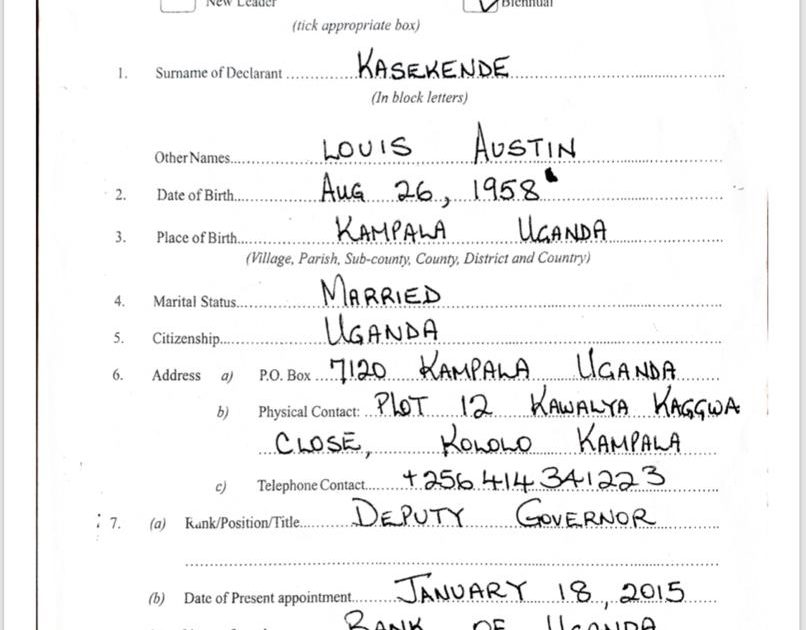 New Leader Biennual
(tick appropriate box)
1. Surname of Declarant KASEKENDE
(In block letters)
Other Names LOUIS AUSTIN
2. Date of Birth AUG 26, 1958
3. Place of Birth KAMPALA UGANDA
(Village, Parish, Sub-county, County, District and Country)
4. Marital Status MARRIED
5. Citizenship UGANDA
6. Address a) P.O. Box 7120 KAMPALA UGANDA
b) Physical Contact: PLOT 12 KAWALYA KAGGWA
CLOSE, KOLOLO KAMPALA
c) Telephone Contact +256 414 341223
7. (a) Rank/Position/Title DEPUTY GOVERNOR
(b) Date of Present appointment JANUARY 18, 2015
BANK OF UGANDA